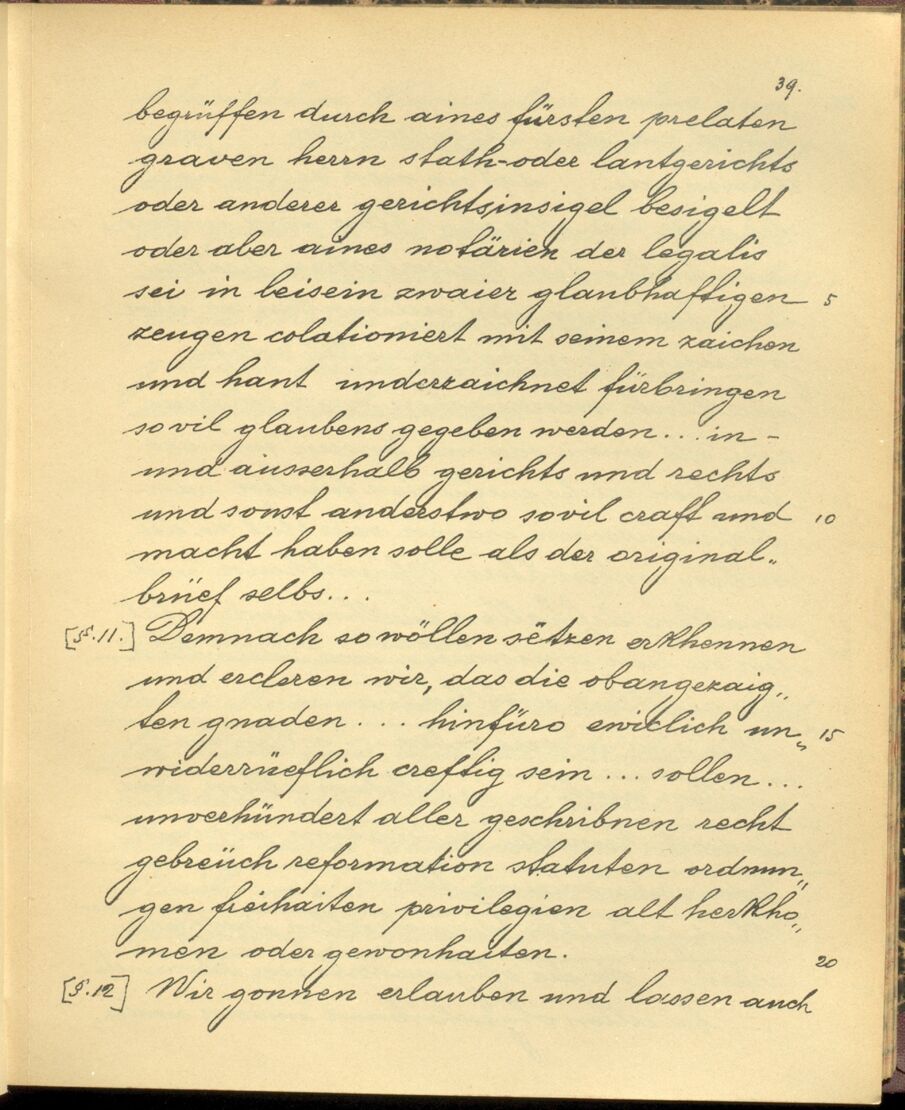 39.
begrüffen durch aines fürsten prelaten
graven herrn stath-oder lantgerichts
oder anderer gerichtsinsigel besigelt
oder aber aines notärien der legalis
sei in beisein zwaier glaubhaftigen 5
zeugen colationiert mit seinem zaichen
und hant underzaichnet fürbringen
sovil glaubens gegeben werden... in-
und ausserhalb gerichts und rechts
und sonst anderstwo sovil craft und 10
macht haben solle als der original„
brüef selbs...
[§.11.] Demnach so wöllen sëtzen erkhennen
und ercleren wir, das die obangezaig„
ten gnaden... hinfüro ewiclich un„ 15
widerrüeflich creftig sein... sollen...
unverhündert aller geschribnen recht
gebreüch reformation statuten ordnun„
gen freihaiten privilegien alt herkho„
men oder gewonhaiten. 20
[§.12] Wir gonnen erlauben und lassen auch